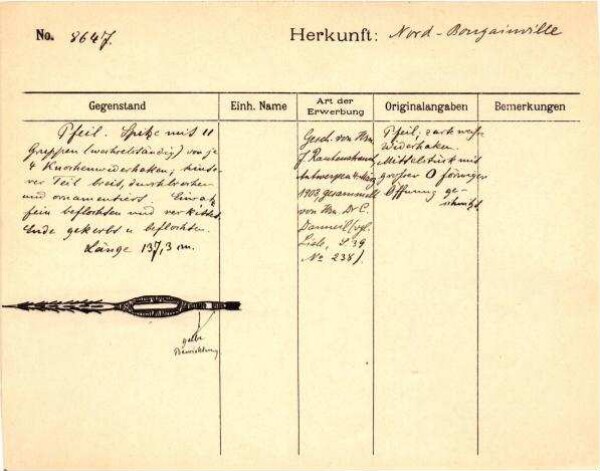 No. 8647.
Herkunft: Nord-Bougainville
Gegenstand
Einh. Name
Art der Erwerbung
Originalangaben
Bemerkungen
Pfeil. Spitze mit 11
Gruppen (wechselständig) von je
4 Knochenwiderhaken; hinte-
rer Teil breit, durchbrochen
und ornamentiert. Einsatz
fein beflochten und verkittet.
Ende gekerbt u beflochten.
Länge 137,3 cm.
Gesch. von Hrn
J. Rautenstrauch
Antwerpen
1903, gesammelt
von Hrn. Dr C.
Danneil (vgl.
Liste, S. 39
No 238).
Pfeil,
Widerhaken.
Mittelstück mit
grosser O förmiger
Öffnung ge-
schnitzt
gelbe